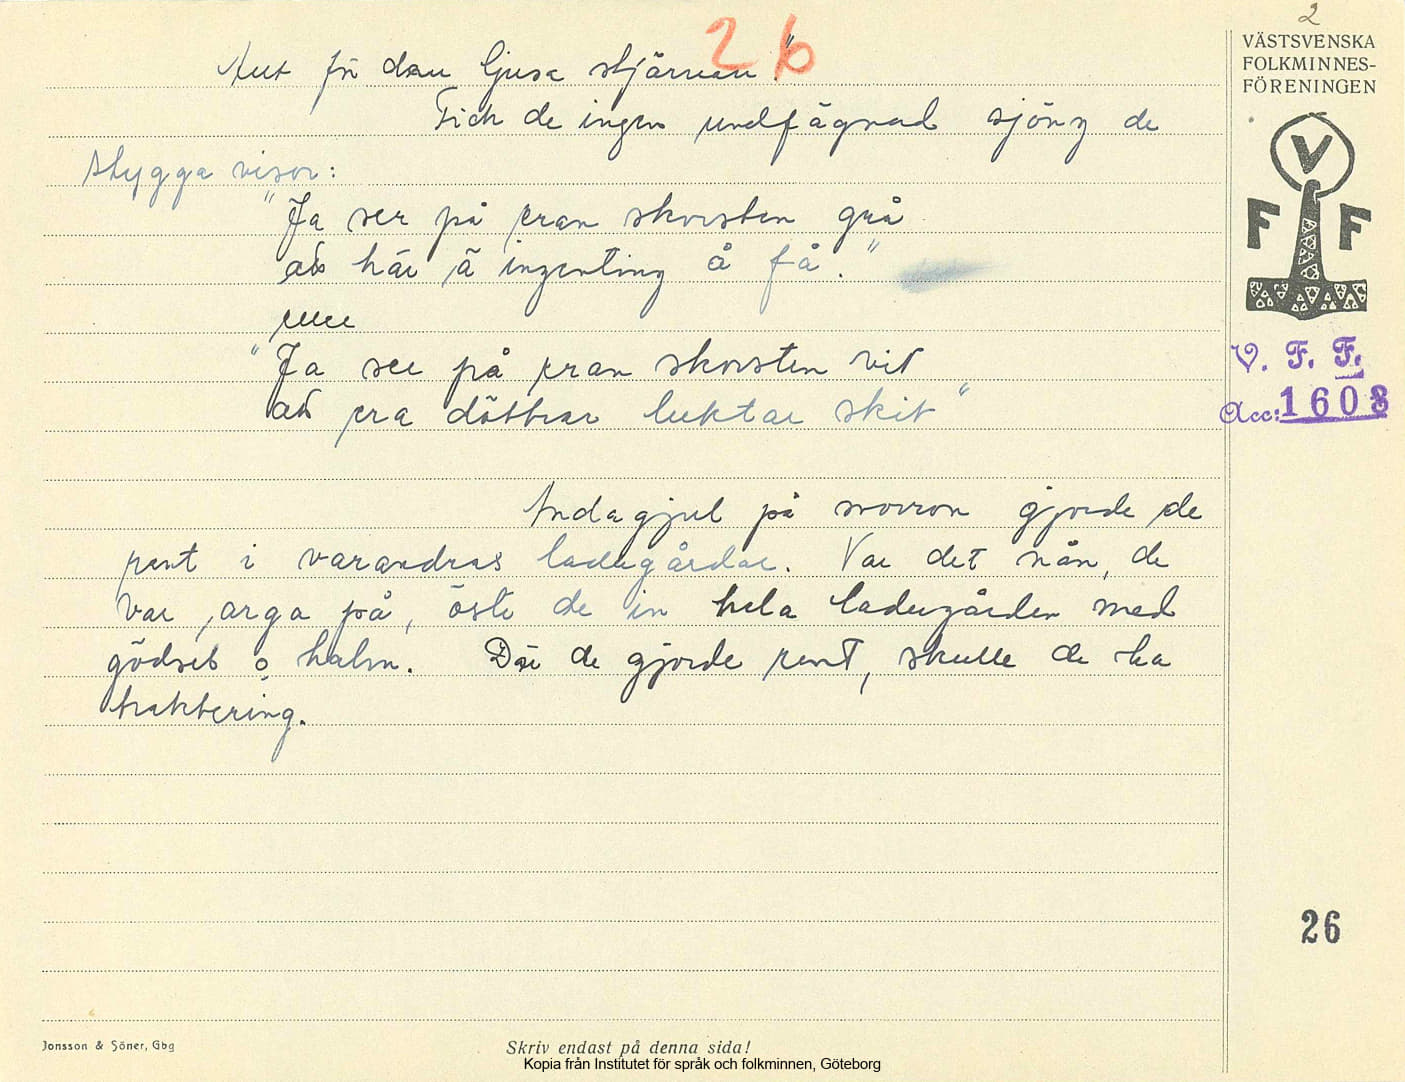 2
26
VÄSTSVENSKA
FOLKMINNES-
FÖRENINGEN
V
F F
V. F. F.
Acc: 1608
för dan ljusa stjärnan."
Fick de ingen undfägnad sjöng de
stygga visor:
"Ja ser på eran skorsten grå
att här ä ingenting å få."
"Ja ser på eran skorsten vit
att era döttrar luktar skit"
Andagjul på morron gjorde de
rent i varandras ladugårdar. Var det nån, de
var arga på, öste de in hela ladugården med
gödsel o halm. Då de gjorde rent, skulle de ha
traktering.
26
Jonsson & Söner, Gbg
Skriv endast på denna sida!
Kopia från Institutet för språk och folkminnen, Göteborg